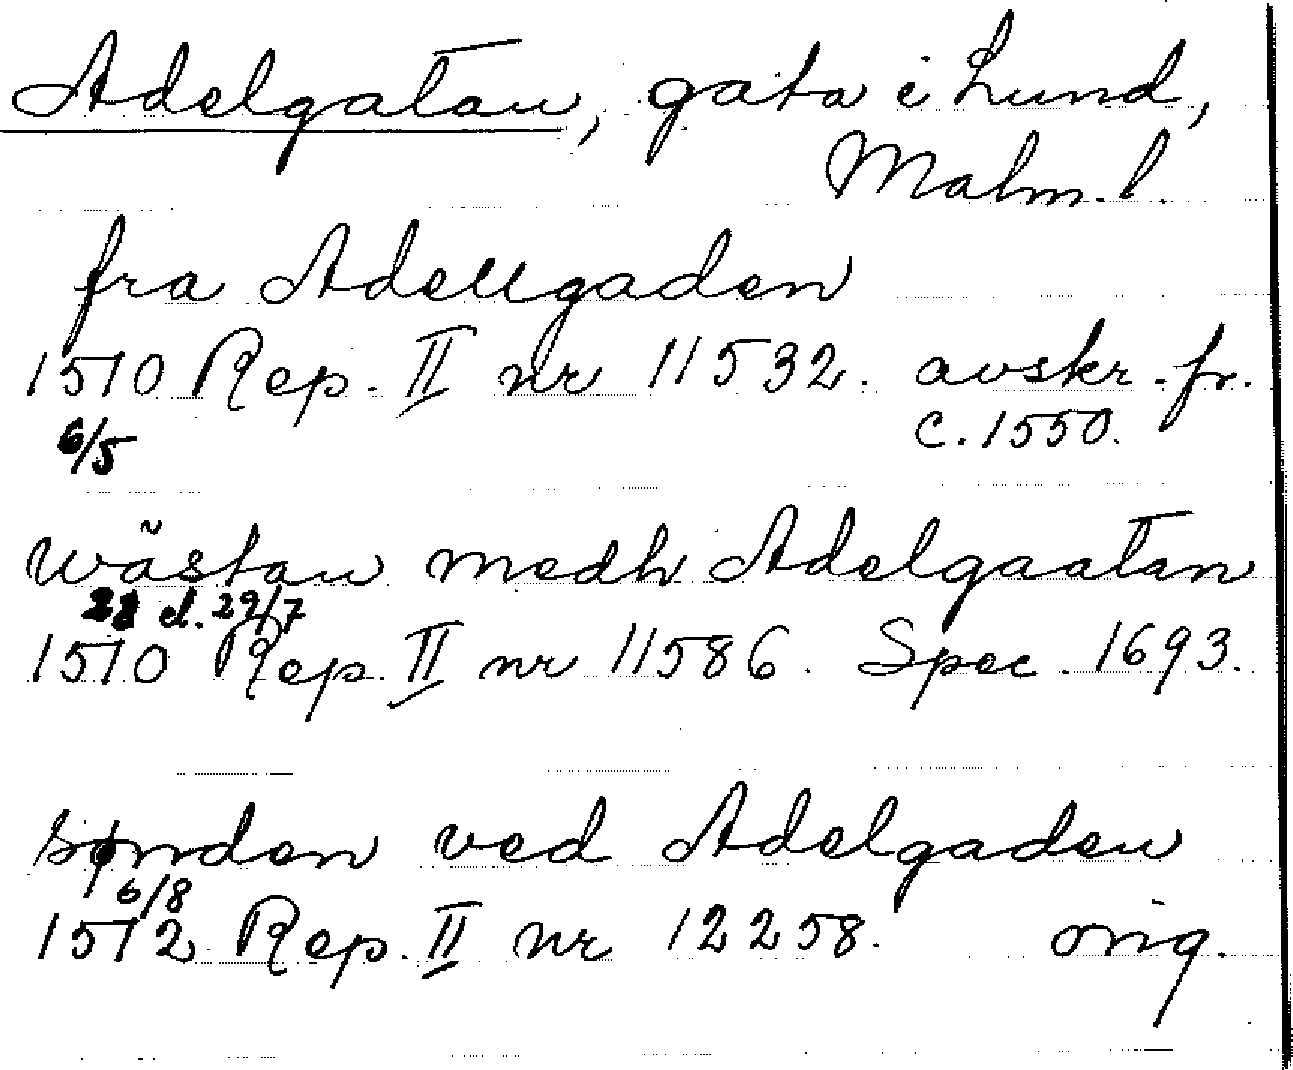 Adelgatan, gata i Lund,
Malm. l.
fra Adellgaden
1510 Rep. II nr 11532. avskr. fr.
6/5 c. 1550.
wästan medh Adelgaatan
22 el. 29/7
1510 Rep. II nr 11586. Spec. 1693.
sønden ved Adelgaden
6/8
1512 Rep. II nr 12258. orig.